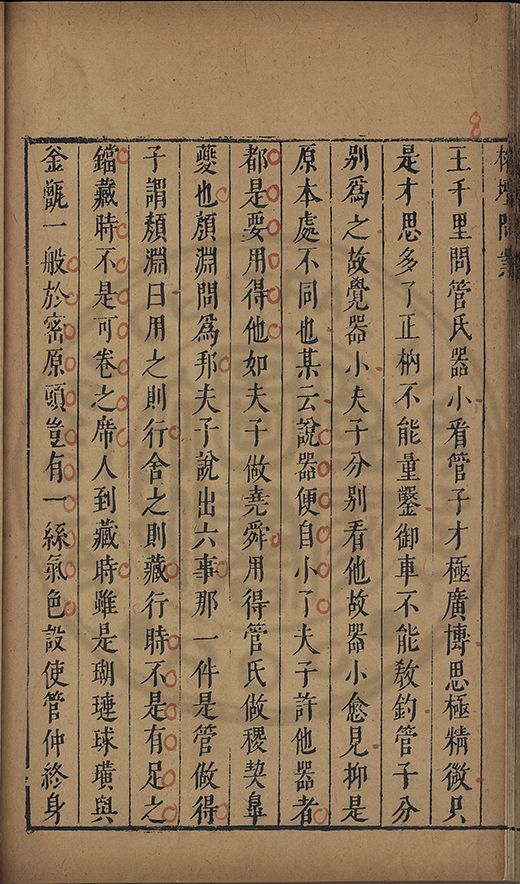 榕壇問業
王千里問管氏器小看管子才極廣博思極精微只
是才思多了正枘不能量鑿御車不能教釣管子分
別爲之故覺器小夫子分別看他故器小愈見抑是
原本處不同也某云說器便自小了夫子許他器者
都是要用得他如夫子做堯舜用得管氏做稷契皋
夔也顏淵問爲邦夫子說出六事那一件是管做得
子謂顏淵曰用之則行舍之則藏行時不是有足之
鐺藏時不是可卷之席人到藏時雖是瑚璉球璜與
釡甑一般於密原頭豈有一絲氣色設使管仲終身